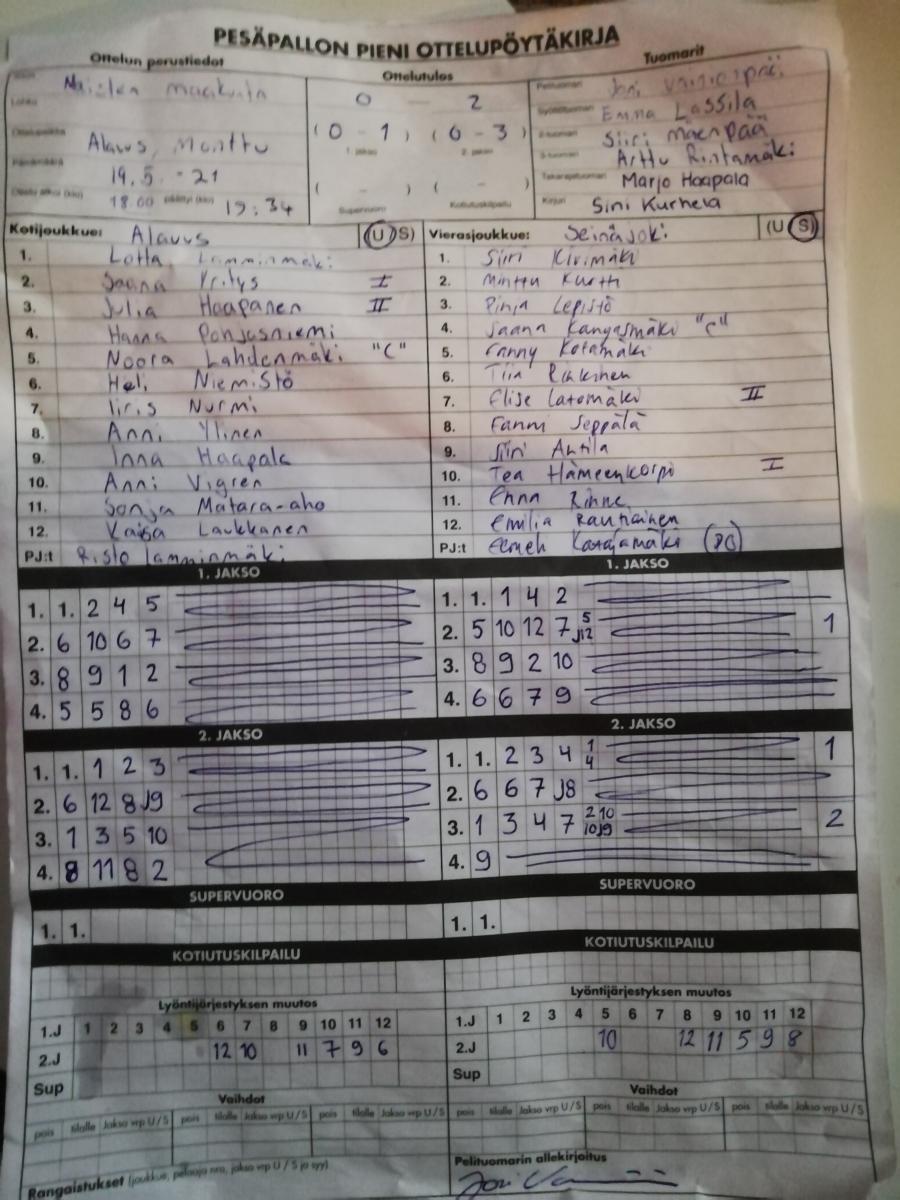 PESÄPALLON PIENI OTTELUPÖYTÄKIRJA
Ottelun perustiedot
Naisten maakunta
Alavus, Monttu
19.5.-21
18.00 19:34
Ottelutulos
0 - 2
(0 - 1) (0 - 3)
1. jakso 2. jakso
( - ) ( - )
Supervuoro Kotiutuskilpailu
Tuomarit
Pelituomari Joni
Syöttötuomari Emma Lassila
2-tuomari Siiri Mäenpää
3-tuomari Arttu Rintamäki
Takarajatuomari Marjo Haapala
Kirjuri Sini Kurhela
Kotijoukkue: Alavus (U/S)
1. Lotta Lamminmäki
2. Saana Yritys I
3. Julia Haapanen II
4. Hanna Pohjasniemi
5. Noora Lahdenmäki "C"
6. Heli Niemistö
7. Iiris Nurmi
8. Anni Ylinen
9. Inna Haapala
10. Anni Vigren
11. Sonja Matara-aho
12. Kaisa Laukkanen
PJ:t Risto Lamminmäki
Vierasjoukkue: Seinäjoki (U/S)
1. Siiri Kivimäki
2. Minttu Kurtti
3. Pinja Lepistö
4. Saana Kangasmäki "C"
5. Fanny Kotamäki
6. Tiia
7. Elise Latomäki II
8. Fanni Seppälä
9. Siiri Antila
10. Tea Hämeenkorpi I
11. Enna Rinne
12. Emilia Rautiainen
PJ:t Eemeli Katajamäki
1. JAKSO
1. 1. 2 4 5
2. 6 10 6 7
3. 8 9 1 2
4. 5 5 8 6
1. JAKSO
1. 1. 1 4 2
2. 5 10 12 7 5 J12 1
3. 8 9 2 10
4. 6 6 7 9
2. JAKSO
1. 1. 1 2 3
2. 6 12 8 J9
3. 1 3 5 10
4. 8 11 8 2
2. JAKSO
1. 1. 2 3 4 1 4 1
2. 6 6 7 J8
3. 1 3 4 7 2 10 10 J9 2
4. 9
SUPERVUORO
1. 1.
SUPERVUORO
1. 1.
KOTIUTUSKILPAILU
KOTIUTUSKILPAILU
Lyöntijärjestyksen muutos
1.J 1 2 3 4 5 6 7 8 9 10 11 12
2.J 12 10 11 7 9 6
Sup
Lyöntijärjestyksen muutos
1.J 1 2 3 4 5 6 7 8 9 10 11 12
2.J 10 12 11 5 9 8
Sup
Vaihdot
pois tilalle Jakso vrp U/S pois tilalle Jakso vrp U/S pois tilalle Jakso vrp U/S
Vaihdot
pois tilalle Jakso vrp U/S pois tilalle Jakso vrp U/S pois tilalle Jakso vrp U/S
Rangaistukset (joukkue, pelaaja nro, jakso vrp U / S ja syy)
Pelituomarin allekirjoitus